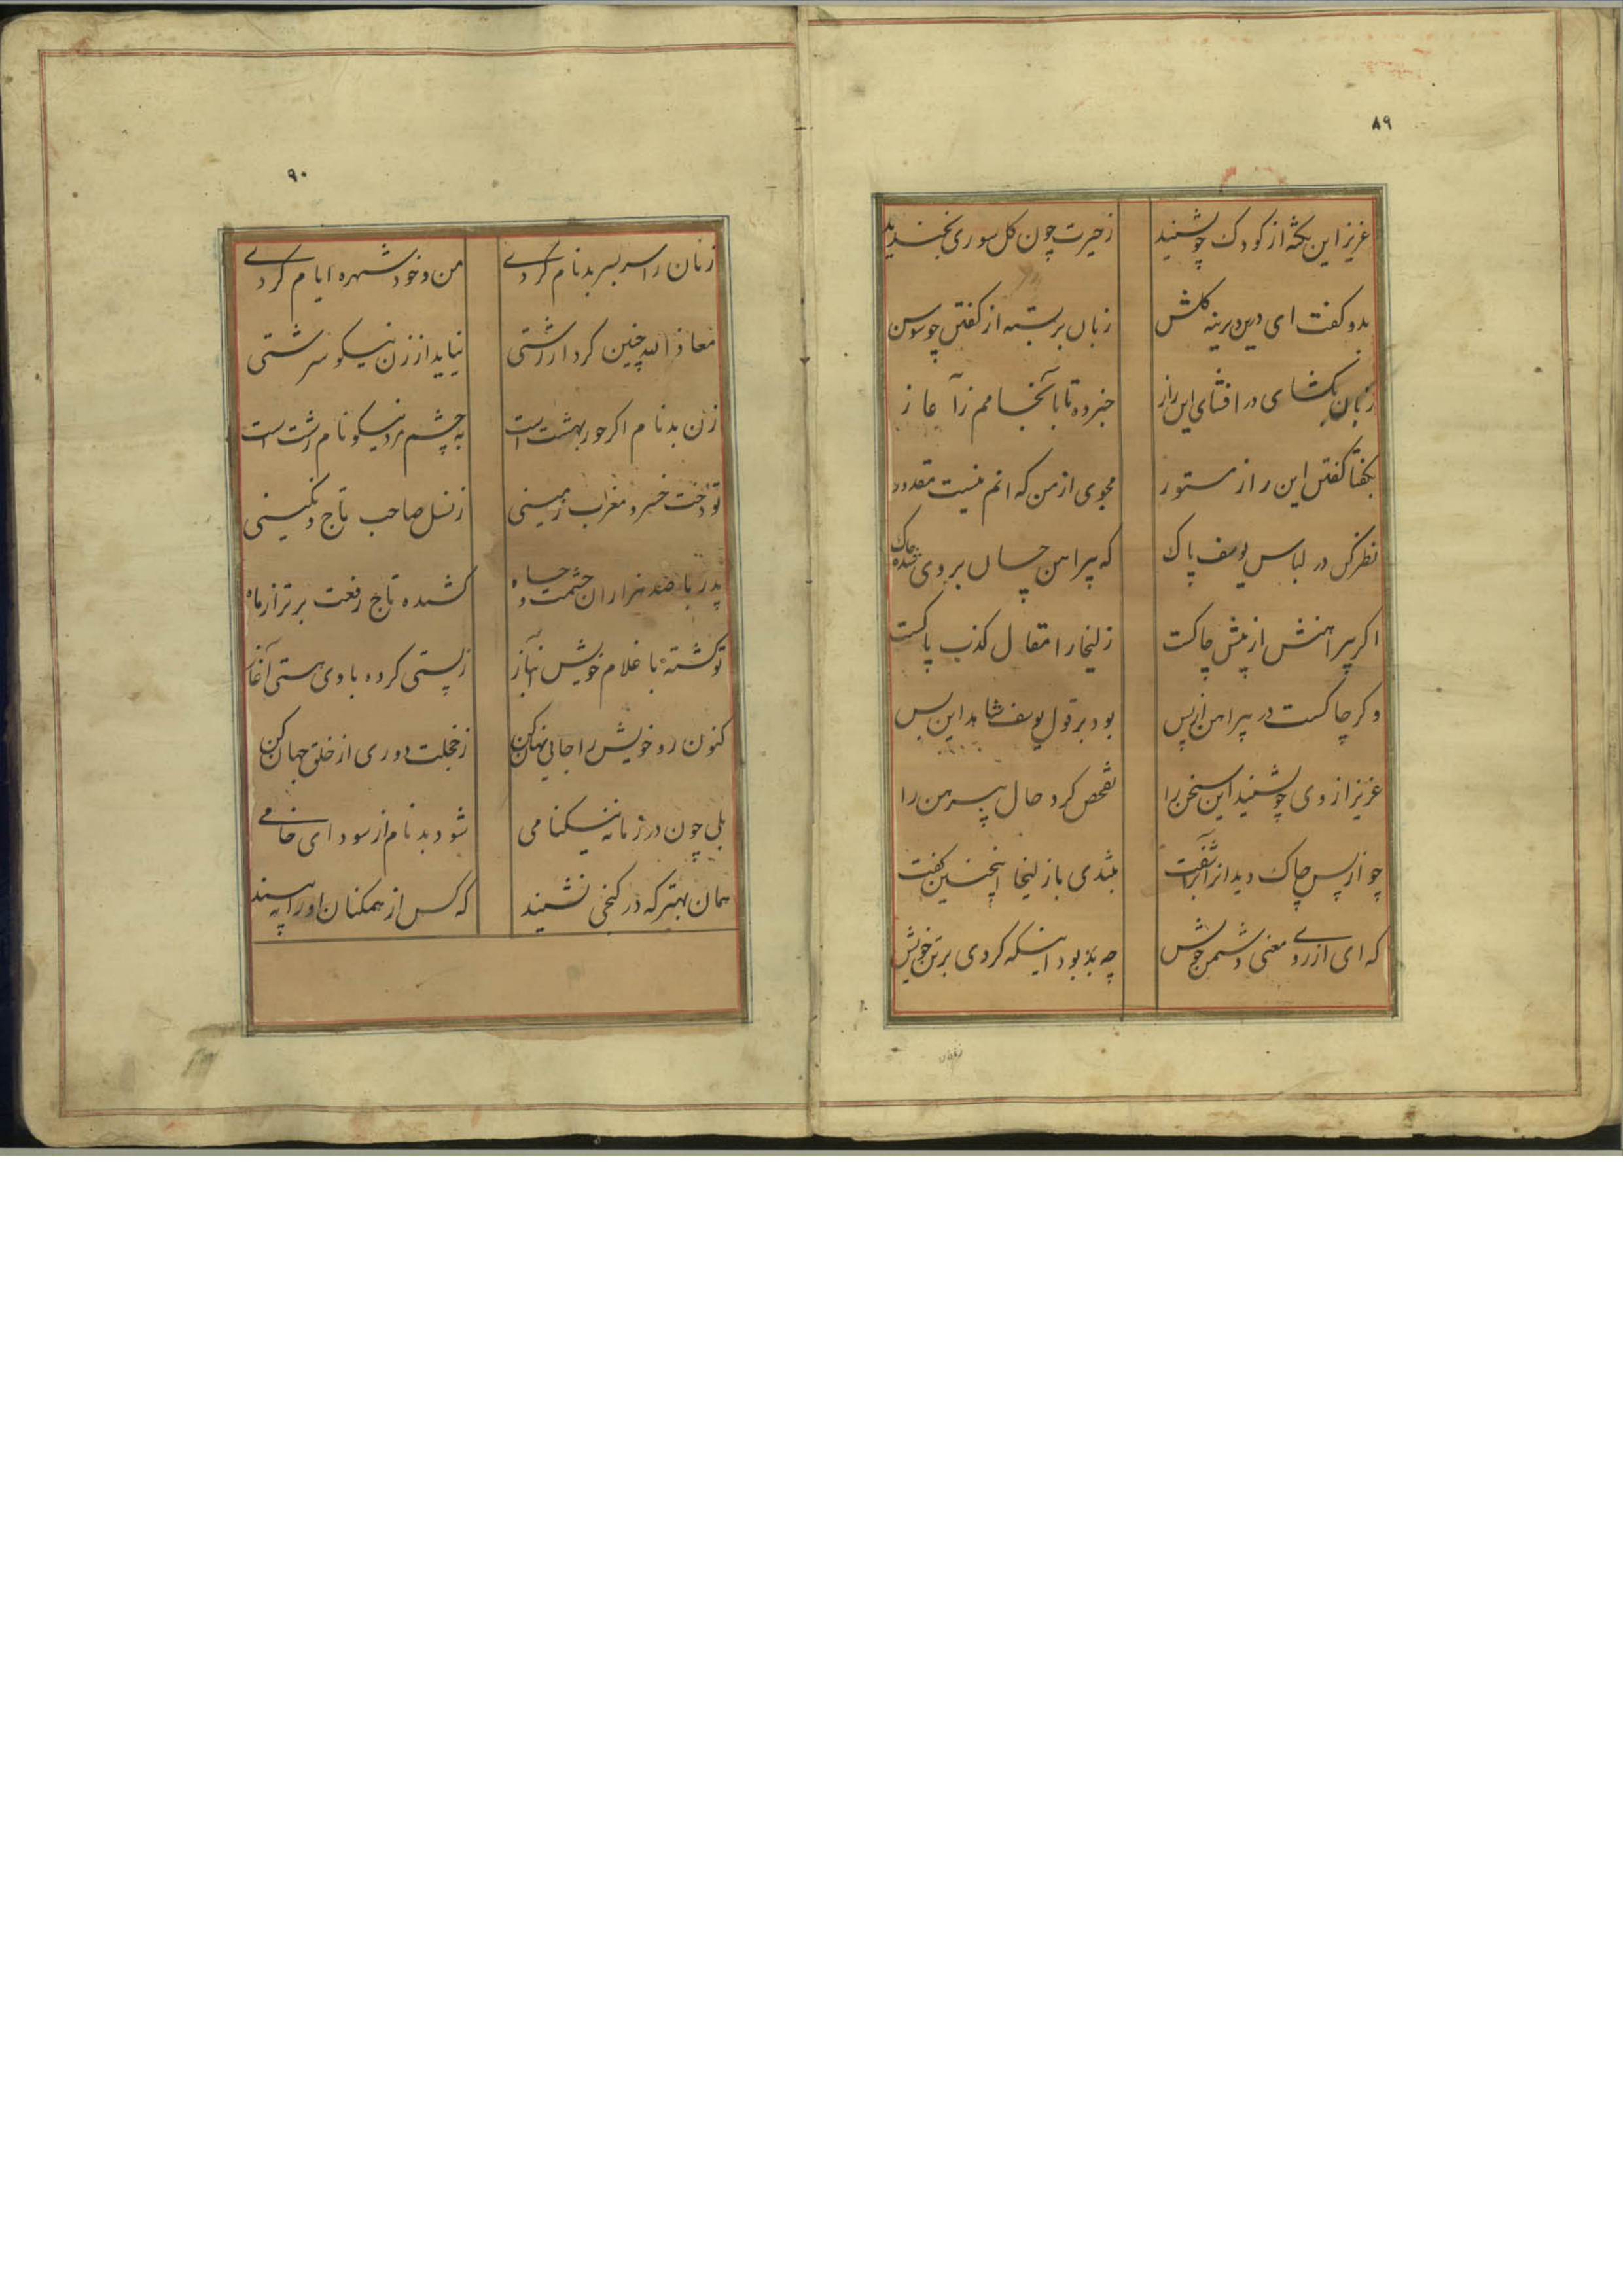 ۸۹
عزیز این نکته از کودک چو شنید زحیرت چون کل سوری بخندید
بدو کفت ای درین دیرینه کلشن زبان بر بسته از کفتن چو سوسن
زبان بکشای در افشای این راز خبر ده تا بانجامم ز آغاز
بکفتا کفتن این راز مستور مجوی از من که انم نیست مقدور
نظر کن در لباس یوسف پاک که پیراهن چسان بر وی شده چاک
اکر پیراهنش از پیش چاکست زلیخا را مقال از کذب پاکست
وکر چاکست در پیراهن از پس بود بر قول یوسف شاهد این بس
عزیز از وی چو شنید این سخن را تفحص کرد حال پیرهن را
چو از پس چاک دید انرا براشفت بتندی با زلیخا اینچنین کفت
که ای از روی معنی دشمن خویش چه بد بود اینکه کردی بر تن خویش
۹۰
زنان را سر بسر بدنام کردی من و خود شهره ایام کردی
معاذ الله چنین کردار زشتی نیاید از زن نیکو سرشتی
زن بدنام اکر حور بهشت است به چشم مرد نیکونام زشت است
تو دخت خسرو مغرب زمینی ز نسل صاحب تاج و نکینی
پدر با صد هزاران حشمت و جاه کشیده تاج رفعت برتر از ماه
تو کشته با غلام خویش انباز ز پستی کرده با وی مستی آغاز
کنون رو خویش را جایی نهان کن ز خجلت دوری از خلق جهان کن
بلی چون در زمانه نیکنامی شود بدنام از سودای خامی
همان بهتر که در کنجی نشیند که کس از همکنان او را نه بیند